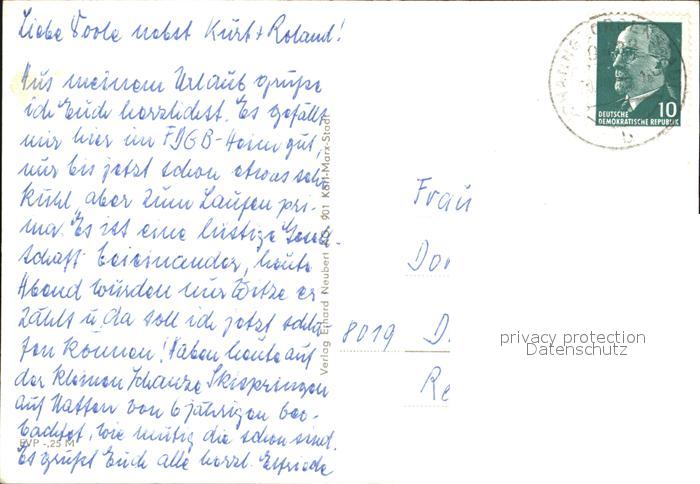 Liebe Doole nebst Kurt + Roland!
Aus meinem Urlaub grüße
ich Euch herzlichst. Es gefällt
mir hier im FDGB-Heim gut,
nur bis jetzt schon etwas sehr
kühl, aber zum Laufen pri-
ma. Es ist eine lustige Gesell-
schaft beieinander, heute
Abend wurden nur Witze er-
zählt u. da soll ich jetzt schla-
fen können! Haben heute auf
der kleinen Schanze Skispringen
auf Matten von 6 jährigen beo-
bachtet, wie mutig die schon sind.
Es grüßt Euch alle herzl. Elfriede
EVP -,25 M
Verlag Erhard Neubert KG, 901 Karl-Marx-Stadt
10
DEUTSCHE
DEMOKRATISCHE REPUBLIK
b
Frau
Dor
8019 D
Re
privacy protection
Datenschutz